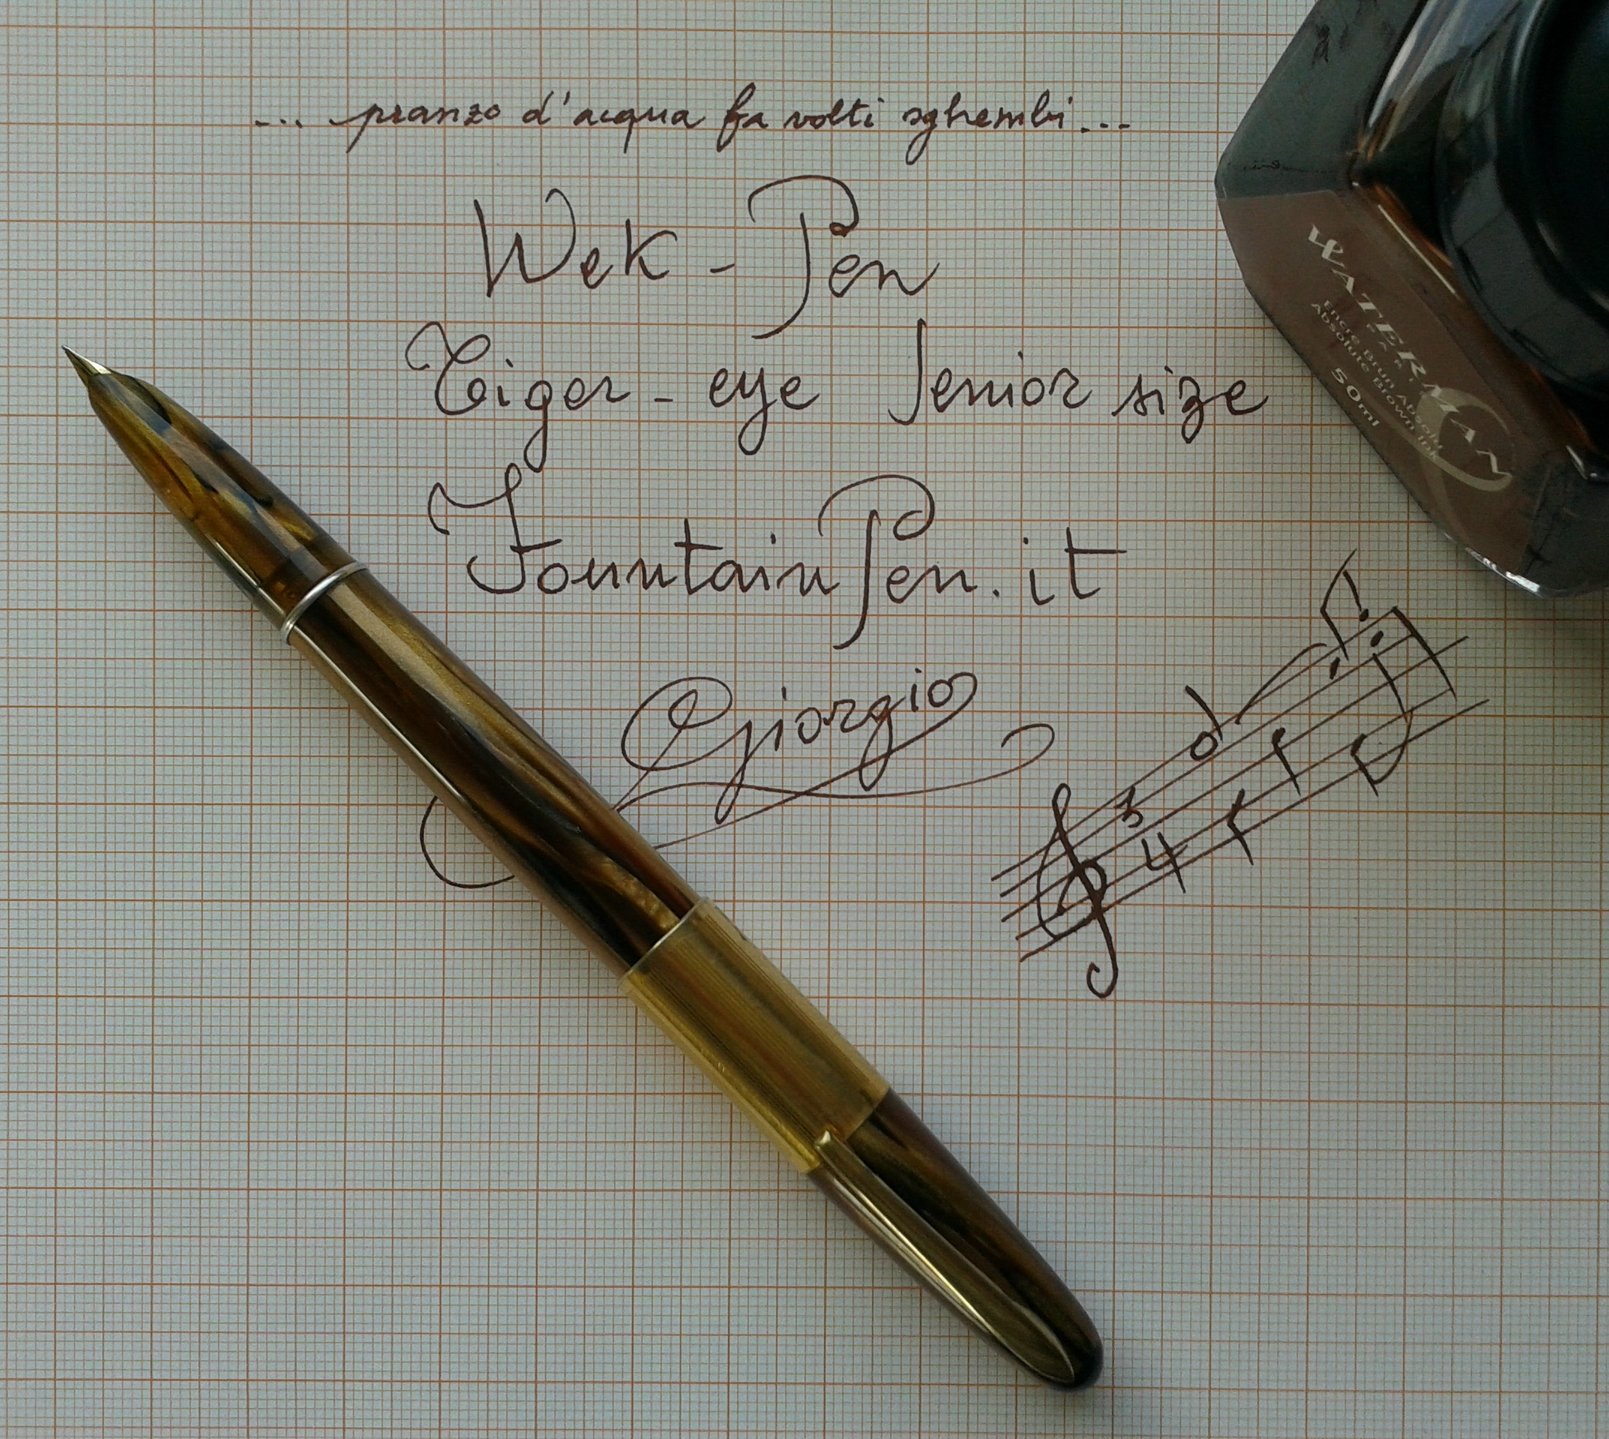 ... pranzo d'acqua fa volti sghembi...
Wek - Pen
Tiger - eye Senior size
FountainPen.it
Giorgio
3
4
WATERMAN
PARIS
Encre Brun Absolu
Absolute Brown Ink
50ml